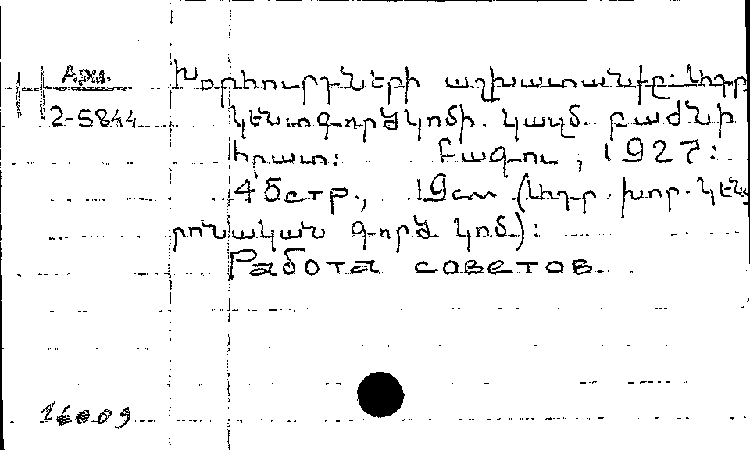 Арм.
2-5844
Խորհուրդների աշխատանքը. Ադրբ
կենտգործկոմի. կազմ. բաժնի
հրատ: Բագու, 1927:
45стр., 19см (Ադր. խոր. կենտ
րոնական գործ. կոմ.):
Работа советов.
16009